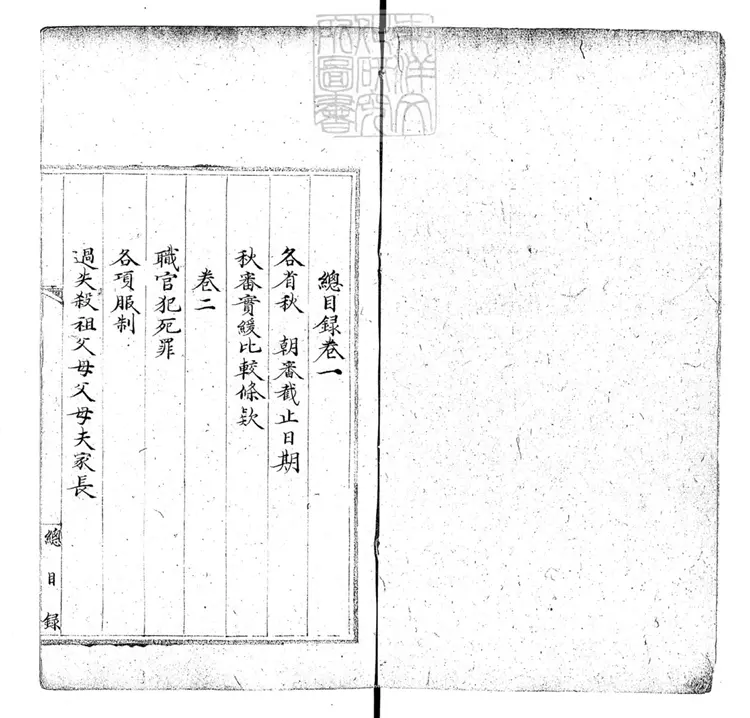 東洋文
化研究
所圖書
總目録卷一
各省秋　朝審截止日期
秋審實緩比較條欵
卷二
職官犯死罪
各項服制
過失殺祖父母父母夫家長
總目録